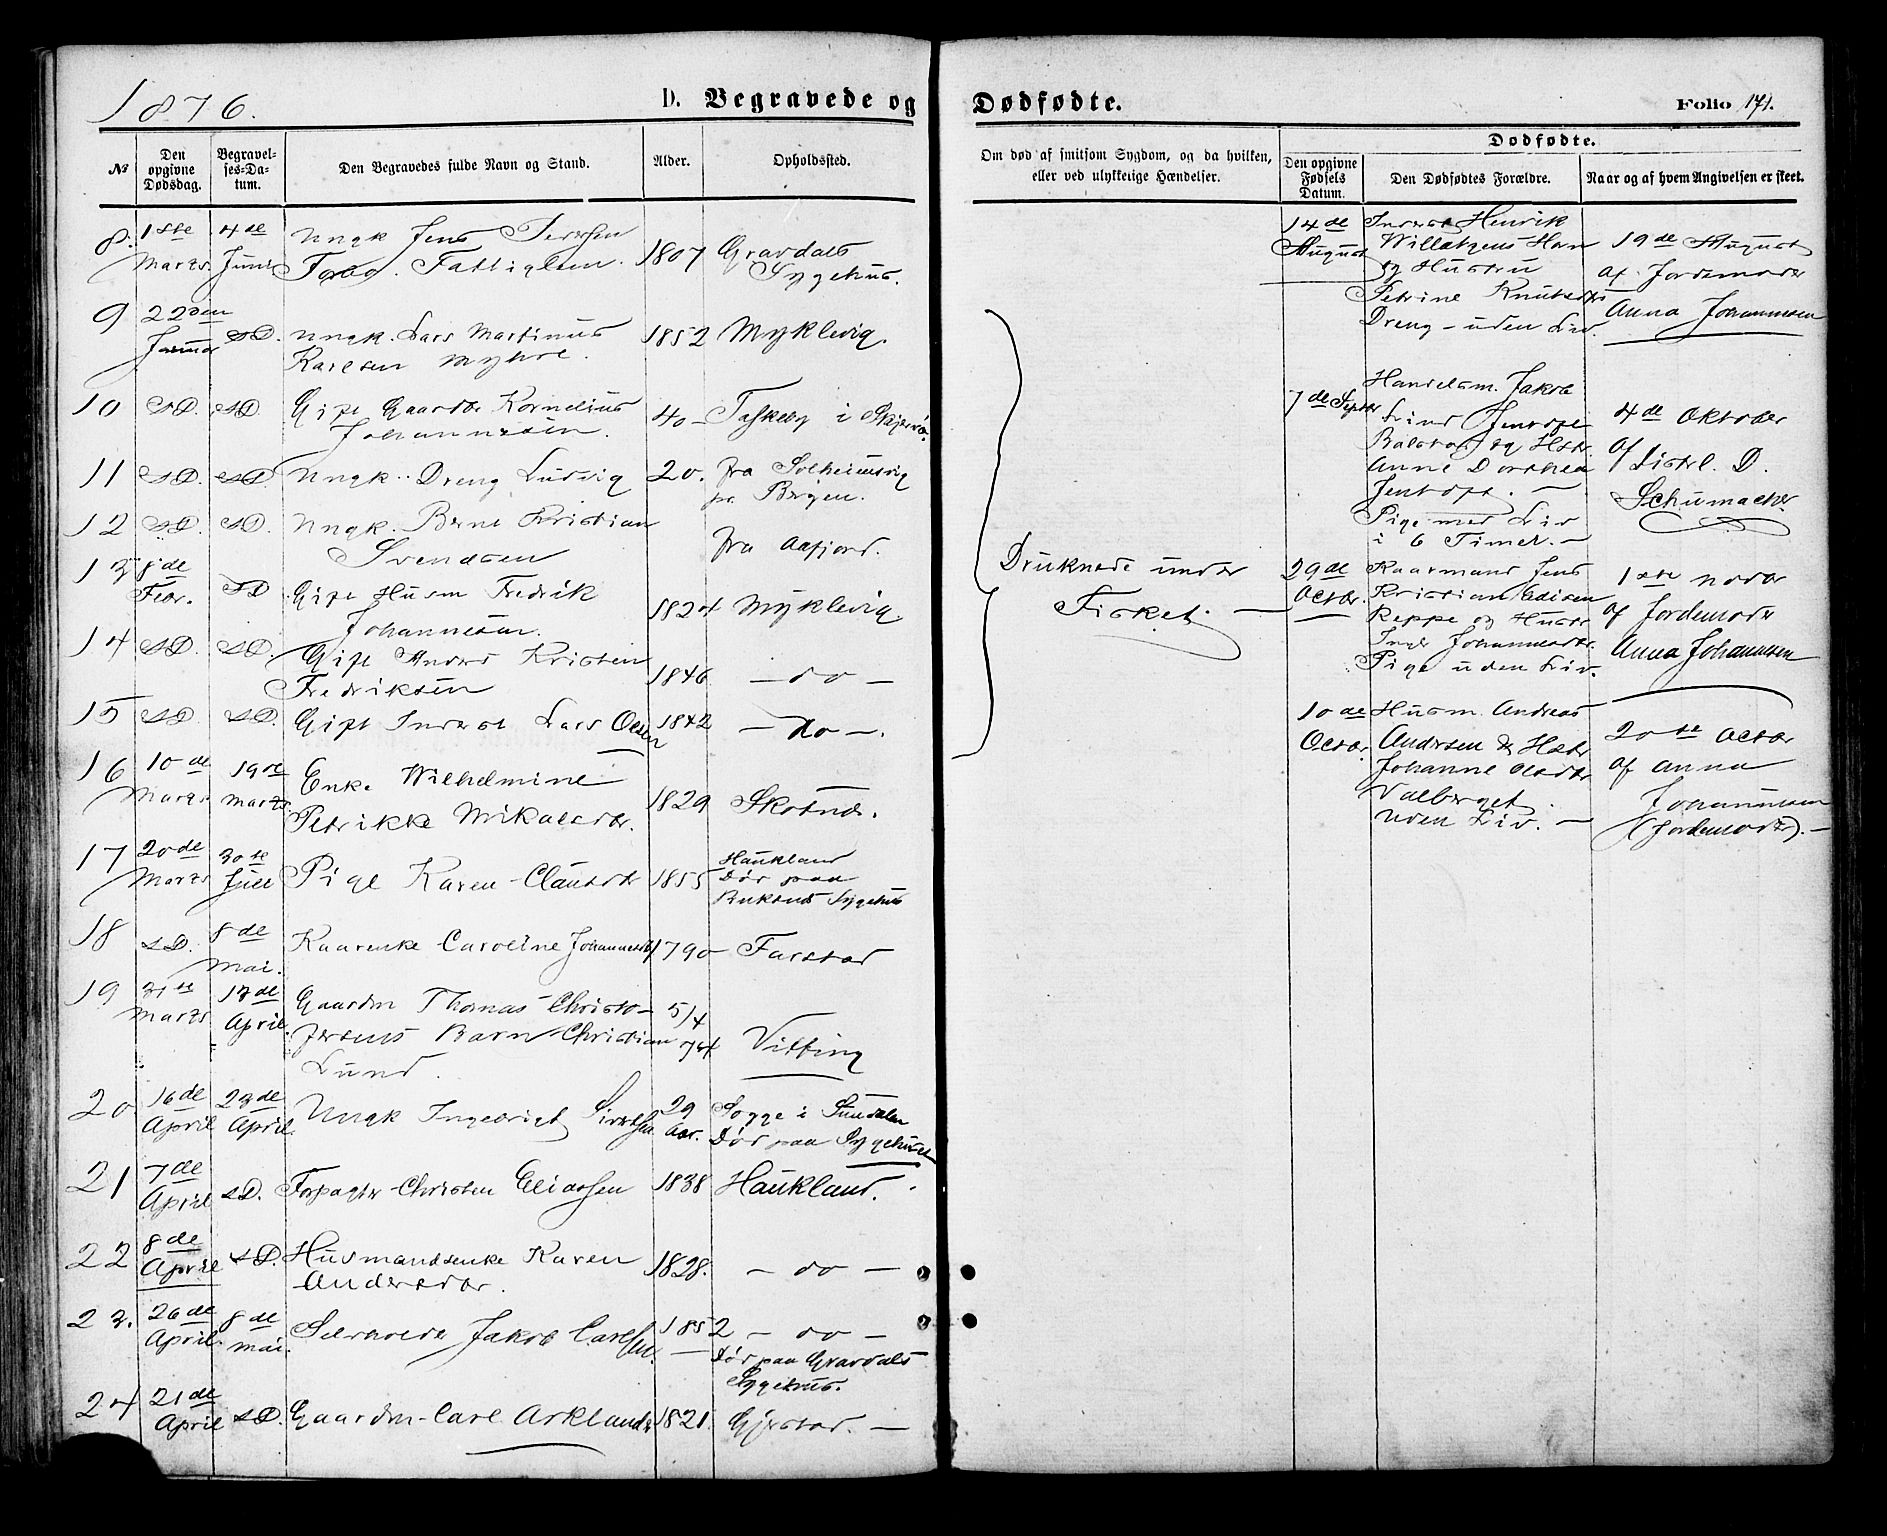 1876.
D. Begravede og
Dødfødte.
Folio 171.
№
Den opgivne Dødsdag.
Begravelses-Datum.
Den Begravedes fulde Navn og Stand.
Alder.
Opholdssted.
Om død af smitsom Sygdom, og da hvilken,
eller ved ulykkelige Hændelser.
Dødfødte.
Den opgivne Fødsels Datum.
Den Dødfødtes Forældre.
Naar og af hvem Angivelsen er skeet.
8. 1ste Marts 4de Juni Ungk Jens
Fattiglem. 1807 Gravdals
Sygehus.
9 22den Januar s D. Ungk. Lars Martinus
Karlsen Myhre. 1852 Myklevig.
10 s D. s D. Gift Gaardbr Kornelius
Johannesen. 40 - i Skjervø.
11 s D. s D. Ungk. Dreng Ludvig 20. fra Solheimsvig
pr Bergen.
12 s D. s D. Ungk. Bernt Kristian
Svendsen fra Aafjord.
13 8de Febr. s D. Gift Husm Fredrik
Johannesen. 1824 Myklevig
14 s D. s D. Gift Anders Kristen
Fredriksen 1846 - do -
15 s D. s D. Gift Inderst Lars Olsen 1842 - do -.
16 10de Marts 19de Marts. Enke Wilhelmine
Petrikke Mikalsdtr. 1829 Skotnæs.
17 20de Marts 30te Juli Pige Karen Clausdtr 1855 Haukland
Død paa
Sygehus
18 s D. 8de Mai. Kaarenke Caroline Johannesdtr 1790 Farstad
19 31te Marts 13de April. Gaardm Thomas Christo-
fersens Barn Christian
Lund. 5/4 74 Vitting
20 16de April 23de April. Ungk Ingebrigt Sivertsen 29 Aar. Sogge i Sundalen
Død paa Sygehuset
21 7de April s D. Forpagter Christen Eliassen 1838 Haukland.
22 8de April s D. Husmandsenke Karen
Andersdtr. 1828. - do -
23. 26de April. 8de Mai. Selveiende Jakob Carlsen. 1852 - do -
Død paa Gravdals
Sygehus.
24 21de April s D. Gaardm Carl Arklands 1821. Gjerstad. -
Druknede under
Fisket. -
14de August Inderst Henrik
Willatzens Han
og Hustru
Petrine Knutsdtr
Dreng - uden Liv.
19de August
af Jordemoder
Anna Johannesen
7de Septbr Handelsm. Jakob
Lind Jentoft
Balstad og Hstr
Anne Dorthea
Jentoft. -
Pige med Liv
i 6 Timer. -
4de Oktober
af Distrl. D.
Schumacher
29de Octbr. Kaarmand Jens
Kristian Edisen
Reppe og Hustr
Inger Johannesdtr.
Pige uden Liv.
1ste Novbr
af Jordemodr
Anna Johannesen
10de Octbr. Husm. Andreas
Andersen & Hstr
Johanne Olsdtr
Valberget.
uden Liv. -
20te Octbr
af Anna
Johannesen
(Jordemoder). -